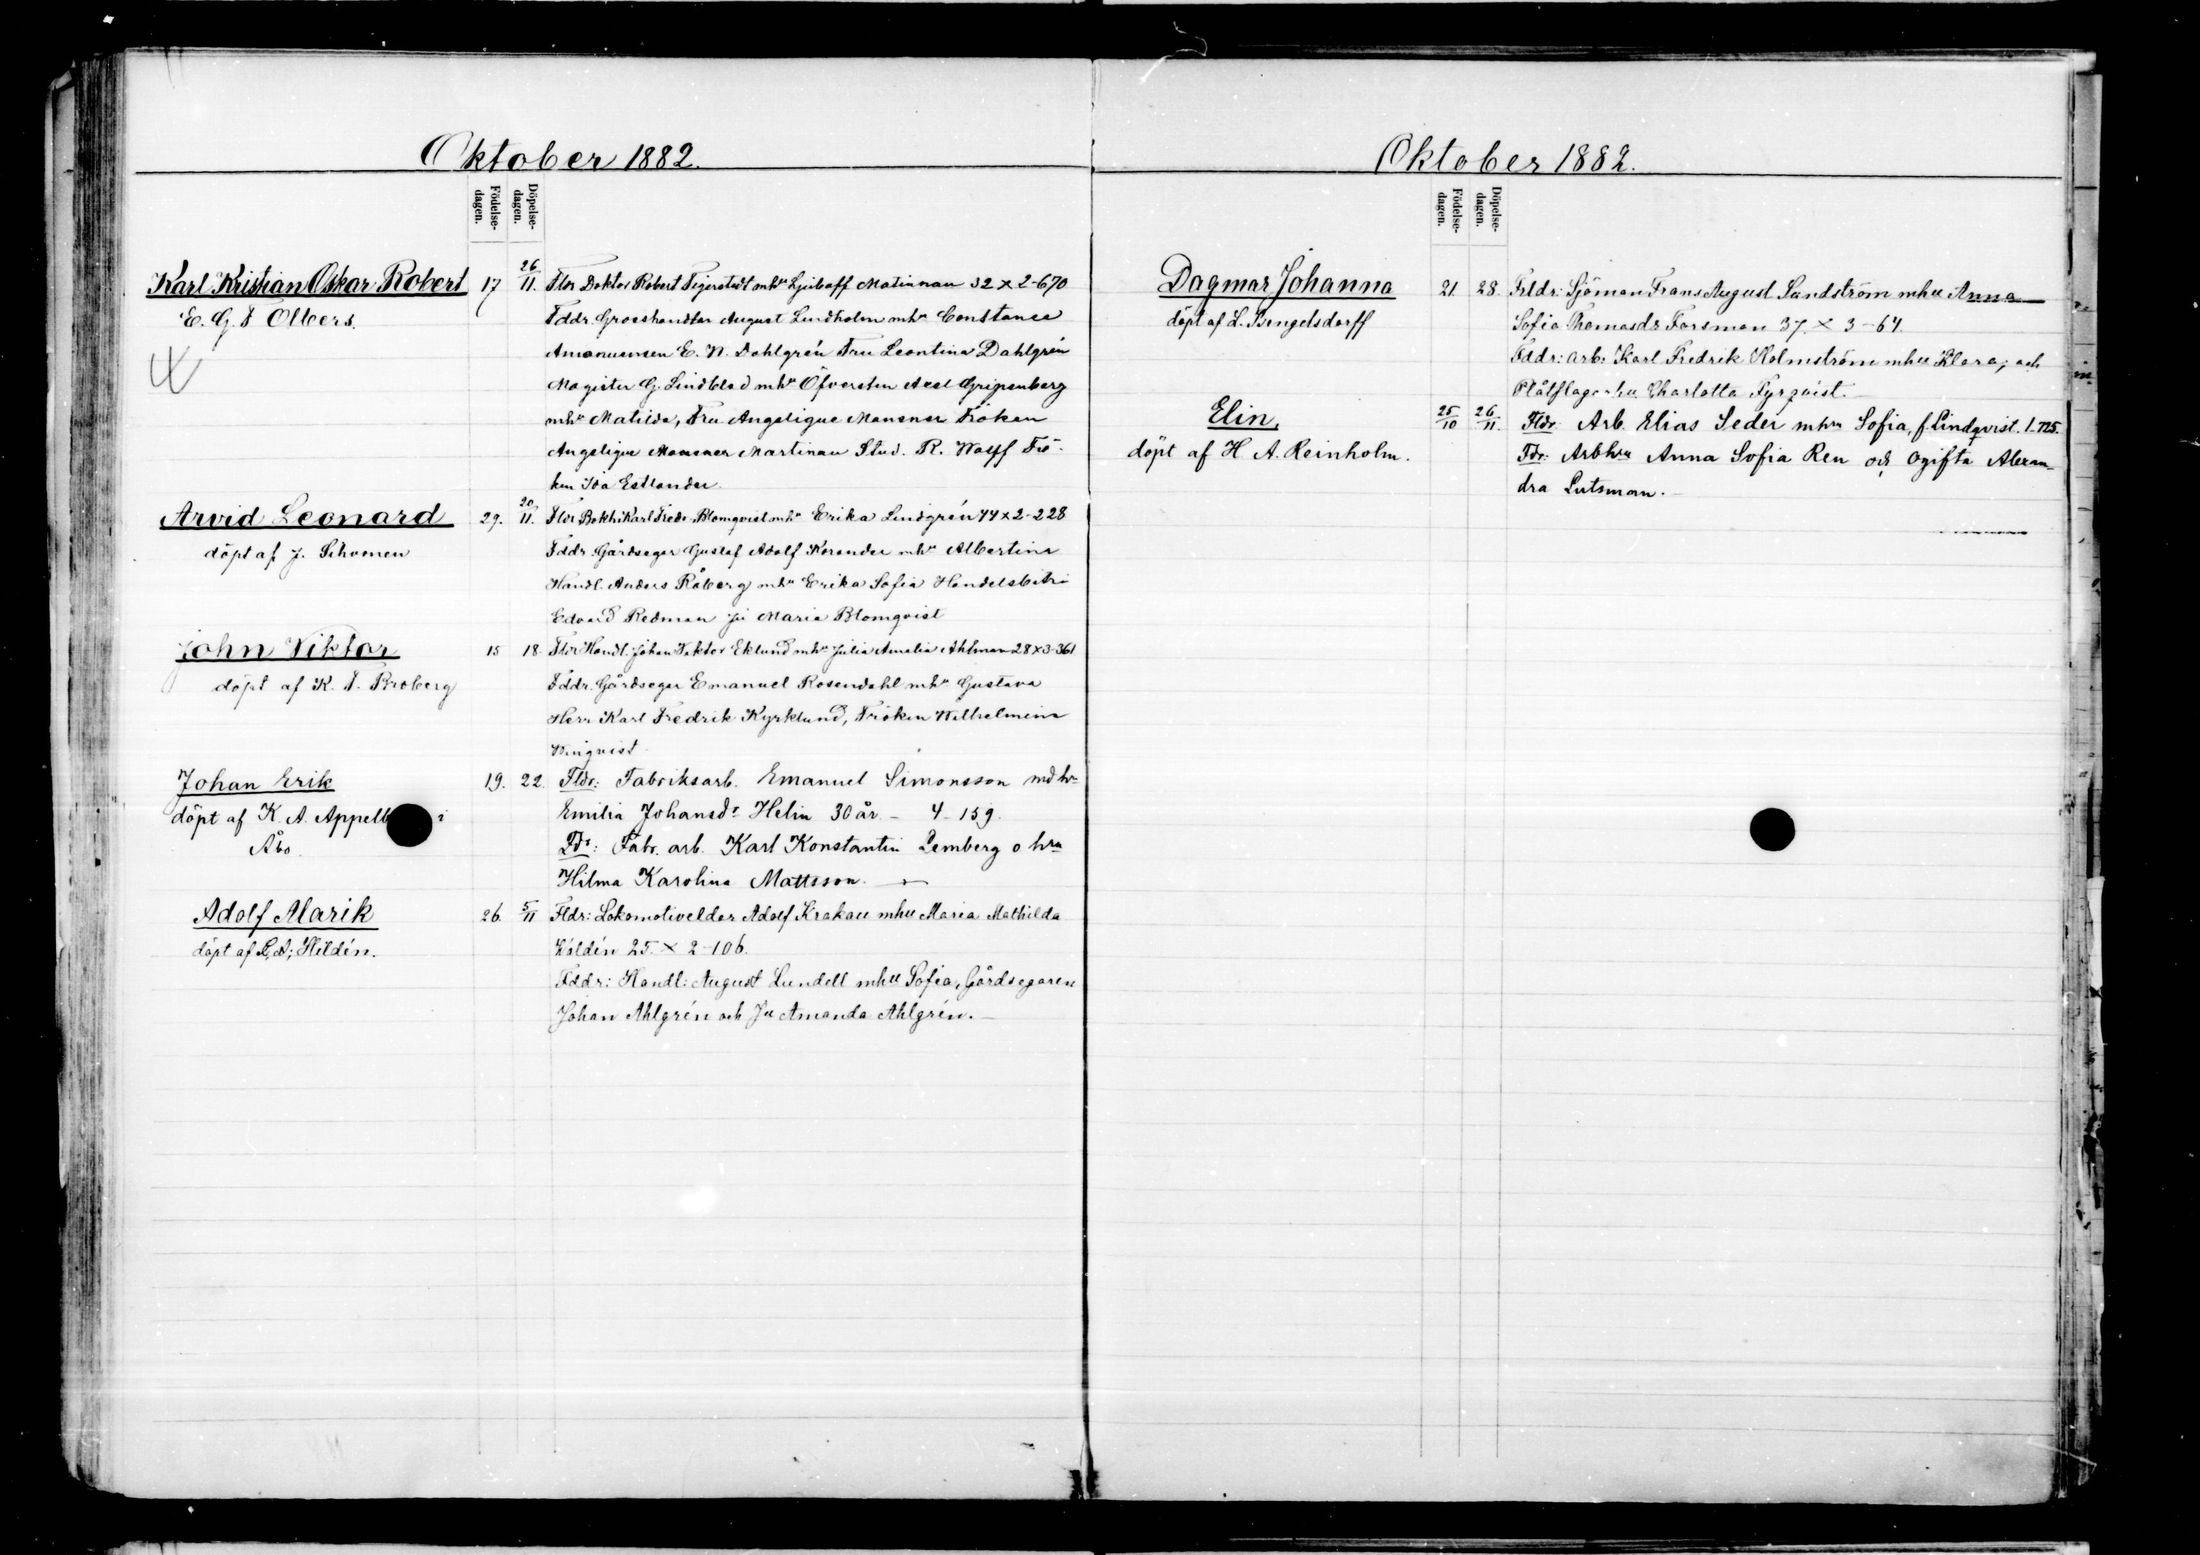 Oktober 1882.
Födelse-
dagen.
Döpelse-
dagen.
Karl Kristian Oskar Robert
E. G. F Olbers.
17
26/11.
Fldr Doktor Robert Tigerstedt mhu Ljuboff Matinnau 32 x 2-670
Fddr. Grosshandlar August Lindholm mhu Constance
Amanuensen E. N. Dahlgrén Fru Leontina Dahlgrén
Magister G. Lindblad mhu Öfversten Axel Gripenberg
mhu Matilda, Fru Angelique Mansner Fröken
Angelique Mansner Martinau Stud. R. Wolff Frö-
ken Ida Estlander.
Arvid Leonard
döpt af J. Sihvonen
29.
20/11.
Fldr Bokh. Karl Fredr. Blomqvist mhu Erika Lindgrén 44 x 2-228
Fddr. Gårdsegar Gustaf Adolf Korander mhu Albertina
Handl. Anders Råberg mhu Erika Sofia Handelsbitr.
Edvard Redman Ju Maria Blomqvist
John Viktor
döpt af K. F. Broberg
15
18.
Fldr Handl. Johan Viktor Eklund mhu Julia Amalia Ahlman 28 x 3-361
Fddr. Gårdsegar Emanuel Rosendahl mhu Gustava
Herr Karl Fredrik Kyrklund, Fröken Wilhelmina
Winqvist.
Johan Erik
döpt af K. A. Appelb i
Åbo.
19.
22.
Fldr: Fabriksarb. Emanuel Simonsson md hu
Emilia Johansdr Helin 30 år. - 4-159.
Fdr: Fabr. arb. Karl Konstantin Lemberg o hru
Hilma Karolina Mattsson.
Adolf Alarik
döpt af A; Hildén.
26.
5/11
Fldr: Lokomotiveldar Adolf Krakau mhu Maria Mathilda
Wäldén 25. x 2-106.
Fddr: Handl: August Lundell mhu Sofia, Gårdsegaren
Johan Ahlgrén och Ju Amanda Ahlgrén.
Oktober 1882.
Födelse-
dagen.
Döpelse-
dagen.
Dagmar Johanna
döpt af L. Bengelsdorff
21.
28.
Frldr: Sjöman Frans August Sundström mhu Anna
Sofia Thomasdr Forsman 37. x 3-64.
Fddr: Arb: Karl Fredrik Holmström mhu Klara, och
Plåtslagar hu Charlotta Fyrqvist.
Elin,
döpt af H A. Reinholm.
25/10
26/11.
Fldr. Arb. Elias Seder mhru Sofia, f. Lindqvist. 1.725.
Fdr: Arbhru Anna Sofia Ren och ogifta Alexan-
dra Lutsman.